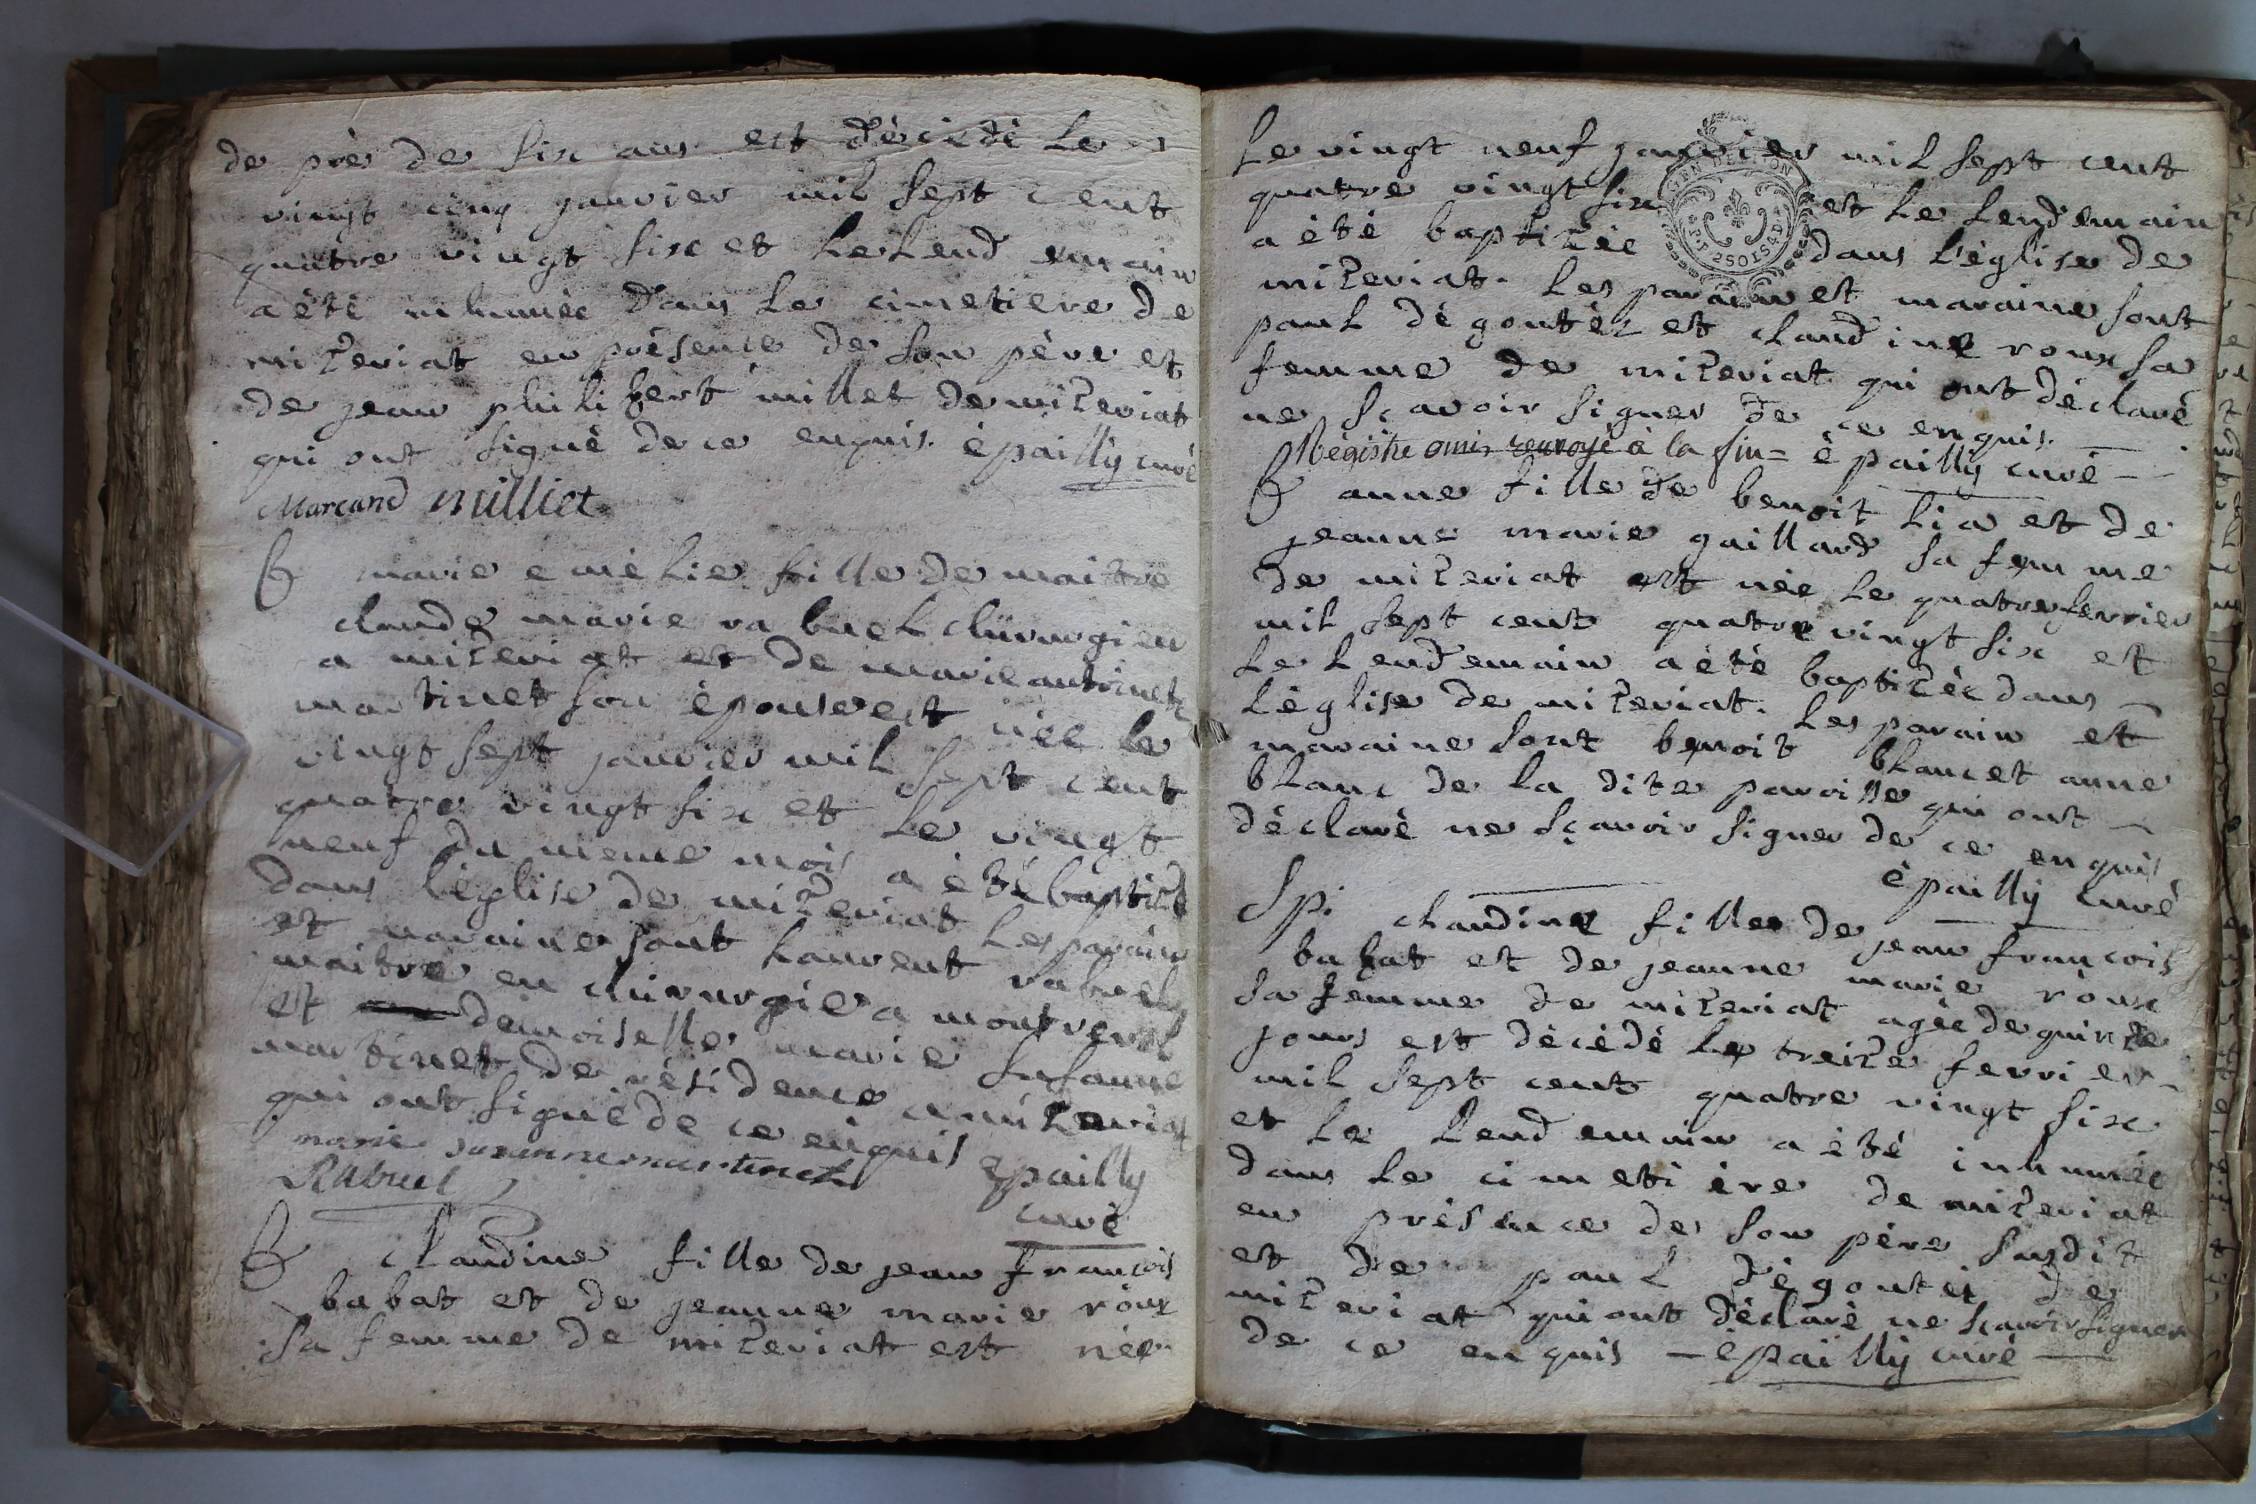 de près de six ans est décédé le
vingt cinq janvier mil sept cent
quatre vingt six et le lendemain
a été inhumée dans le cimetiere de
mizeriat en présence de son père et
de jean philibert millet de mizeriat
qui ont signé de ce enquis. épailly curé
Marcand Milliet
B marie emélie fille de maitre
claude marie rabuel chirurgien
a mizeriat et de marie antoinette
martinet son épouse est née le
vingt sept janvier mil sept cent
quatre vingt six et le vingt
neuf du meme mois a été baptizée
dans l'église de mizeriat les parain
et maraine sont laurent rabuel
maitre en chirurgie a montrevel
et demoiselle marie susanne
martinet de résidence a mizeriat
qui ont signé de ce enquis épailly
curé
marie susanne martinet
RABuel
B claudine fille de jean françois
babat et de jeanne marie roux
sa femme de mizeriat est née
le vingt neuf janvier mil sept cent
quatre vingt six et le lendemain
a été baptizée dans l'église de
mizeriat. les parain et maraine sont
paul dégoutez et claudine roux sa
femme de mizeriat qui ont déclaré
ne sçavoir signer de ce enquis.
Régistre omis renvoyé à la fin = épailly curé
B anne fille de benoit lia et de
jeanne marie gaillard sa femme
de mizeriat est née le quatre fevrier
mil sept cent quatre vingt six et
le lendemain a été baptizée dans
l'église de mizeriat. les parain et
maraine sont benoit blanc et anne
blanc de la dite paroisse qui ont
déclaré ne sçavoir signer de ce enquis
épailly curé
Spi claudine fille de jean françois
babat et de jeanne marie roux
sa femme de mizeriat agée de quinze
jours est décédé le treize fevrier
mil sept cent quatre vingt six
et le lendemain a été inhumée
dans le cimetière de mizeriat
en présence de son père susdit
et de paul dégoutez de
mizeriat qui ont déclaré ne scavoir signer
de ce enquis — épailly curé